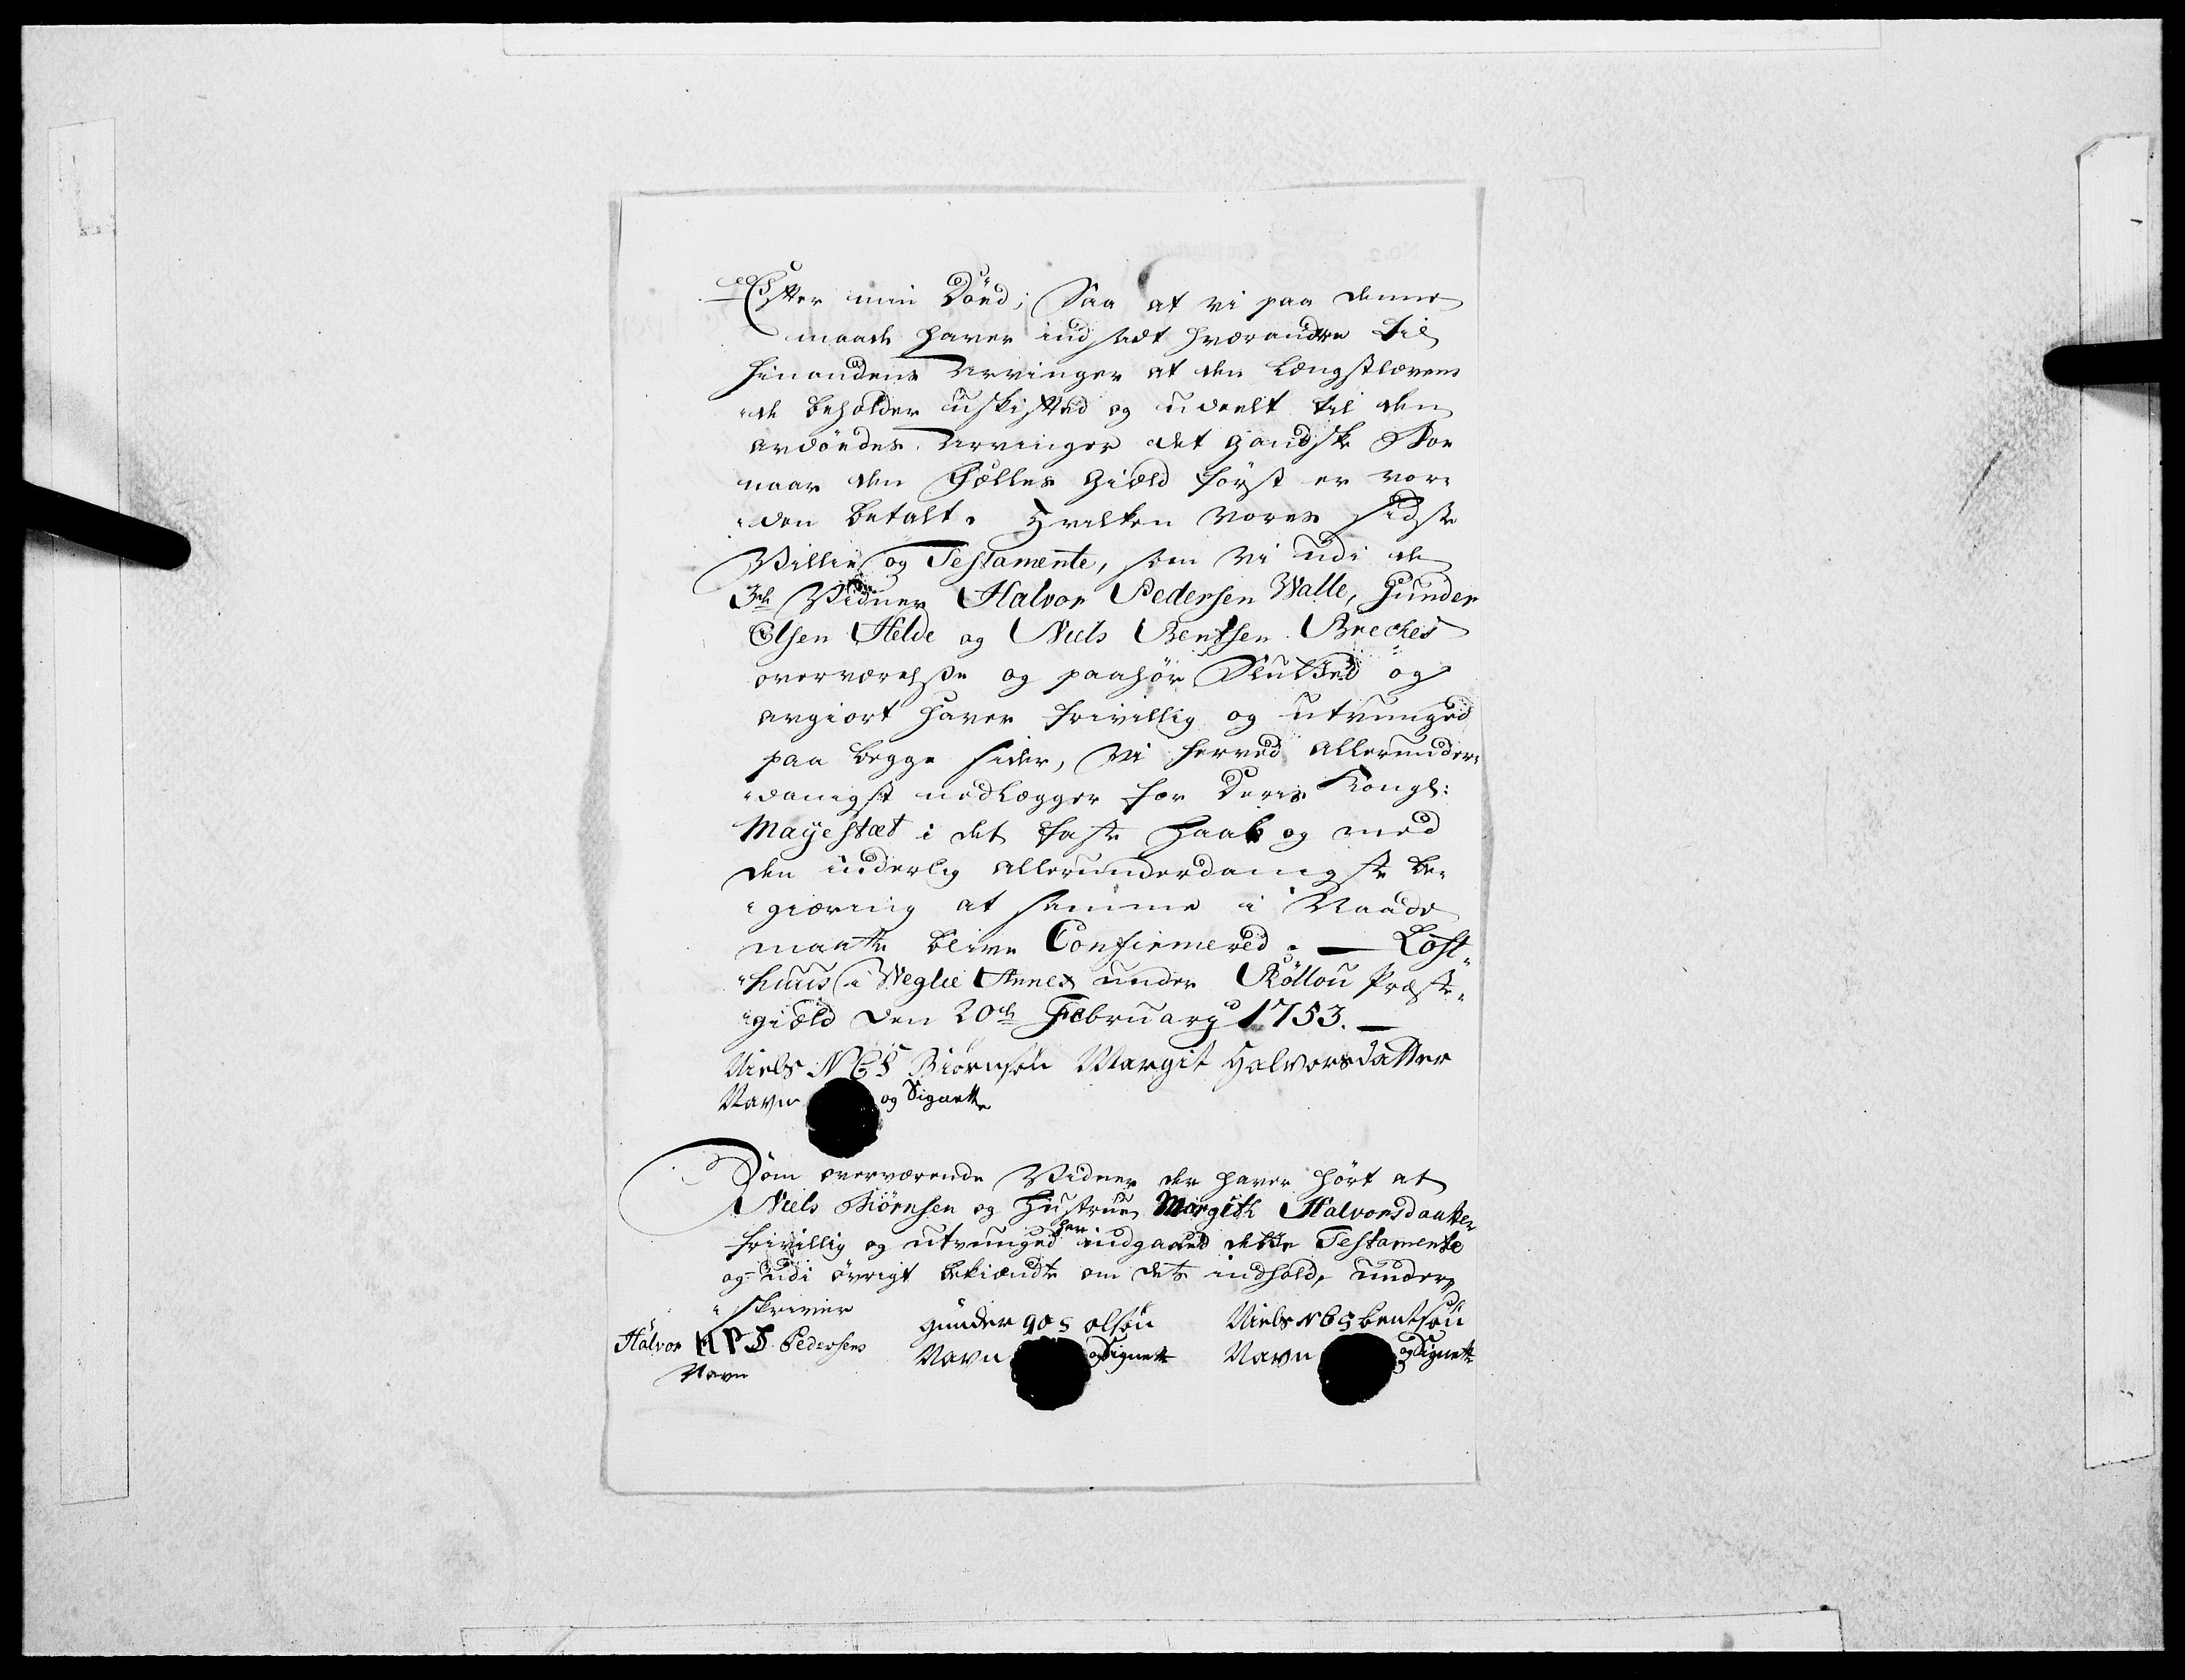 Efter min Død; Saa at vi paa denne
maade haver indsadt hverandre til
hinandens Arvinger at den længstleven¬
"de beholder uskifted og udeelt til den
avdødes Arvinger det gandske Boe
naar den Fælles Giæld først er vor¬
"den betalt. Hvilken vores sidste
Villie og Testamente, som vi udi de
3de Vidner Halvor Pedersen Walle, Gunder
Olsen Helde og Niels Bentsen Breches
overværelse og paahør Slutted og
avgiort haver frivillig og utvunged
paa begge sider, vi herved allerunder¬
"danigst nedlægger for Deris Kongl:
Mayestæt i det faste Haab og med
den inderlig allerunderdanigste be¬
"giæring at samme i Naade
maatte blive Confirmered. — Lost¬
"huus i Weglie Annex under Rollou Præste¬
"giæld den 20de February 1753. —
Niels NBS Biørnsøn Margit Halvorsdatter
Navn og Signette
Som overværende Vidner der haver hørt at
Niels Biørnsen og Hustrue Margith Halvorsdaatter
frivillig og utvunged her indgaaed dette Testamente
og udi øvrigt bekiændte om dets indhold, under
"skriver
Halvor HPS Pedersens
Navn
Gunder GOS Olsøn
Navn og Signette
Niels NBS Bentsøn
Navn og Signette